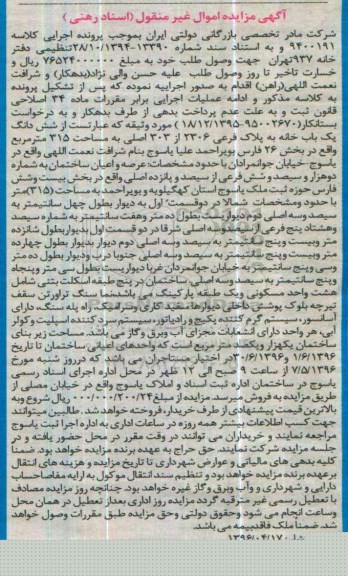 آگهی مزایده اموال غیر منقول (اسناد رهنی)
شرکت مادر تخصصی بازرگانی دولتی ایران بموجب پرونده اجرایی کلاسه
۹۴۰۰۱۹۱ و به استناد سند شماره ۱۳۳۹۰-۲۸/۱۰/۱۳۹۴ تنظیمی دفتر
خانه ۹۳۷تهران جهت وصول طلب خود به مبلغ ۷۶۵۲۴۰۰۰۰۰ ریال و
خسارت تاخیر تا روز وصول طلب علیه حسن والی نژاد(بدهکار) و شرافت
نعمت اللهی(راهن) اقدام به صدور اجراییه نموده که پس از تشکیل پرونده
به کلاسه مذکور و ادامه عملیات اجرایی برابر مقررات ماده ۳۴ اصلاحی
قانون ثبت و به علت عدم پرداخت بدهی از طرف بدهکار و به درخواست
بستانکار(۹۵۰۰۲۶۷۰-۱۸/۱۲/۱۳۹۵) مورد وثیقه که عبارتست از شش دانگ
یک باب خانه به پلاک فرعی ۲۳۰۶ از ۳۰۳ اصلی به مساحت ۳۱۵ مترمربع
واقع در بخش ۲۶ فارس زیراحمد علیا یاسوج بنام شرافت نعمت اللهی واقع در
یاسوج خیابان جوانمردان با حدود مشخصات: عرصه و اعیان ساختمان به شماره
دوهزار و سیصد و شش فرعی از سیصد و پانزده اصلی واقع در بخش بیست وشش
فارس حوزه ثبت ملک یاسوج استان کهگیلویه و بویراحمد به مساحت(۳۱۵)متر
با حدود ومشخصات شمالا در دوقسمت اول به دیوار بطول چهل سانتیمتر به
سیصد وسه اصلی دوم دیواریست بطول ده متر وهفت سانتیمتر به شماره سیصد
وهشتاد پنج فرعی از سیصدوسه اصلی شرقا در دو قسمت اول بدیواربطول شانزده
متر وبیست وپنج سانتیمتر به سیصد وسه اصلی دوم دیوار بدیوار بطول چهارده
متر وبیست وپنج سانتیمتر به سیصد وسه اصلی جنوبا درب ودیوار بطول ده متر
وسی وپنج سانتیمتر به خیابان جوانمردان غربا دیواریست بطول سی متر وپنجاه
وپنج سانتیمتر به سیصد وسه اصلی. ساختمان در پنج طبقه اسکلت بتنی شامل
هشت واحد مسکونی ویک طبقه پارکینگ می باشد.نما سنگ تراورتن سقف
تیرچه بلوک پوشش داخلی دیوارها سفید کاری وسرامیک، راه پله سنگ، دارای
آسانسور، سیستم گرم کننده پکیج و رادیاتور، سیستم سرد کننده اسپلیت و کولر
آبی، هر واحد دارای انشعابات مجزای آب وبرق و گاز می باشد. مساحت زیر بنای
ساختمان یکهزار ویکصد متر مربع است که واحدهای اعیانی ساختمان تا تاریخ
۱/۶/۱۳۹۶ و۳۰/۶/۱۳۹۶در اختیار مستاجران می باشد که درروز شنبه مورخ
۷/۵/۱۳۹۶ از ساعت ۹ صبح الی ۱۲ ظهر در محل اداره اجرای اسناد رسمی
یاسوج در ساختمان اداره ثبت اسناد و املاک یاسوج واقع در خیابان مصلی از
طریق مزایده به فروش میرسد. مزایده از مبلغ ۲۴/۲۰۰/۰۰۰/۰۰۰ ریال شروع وبه
بالاترین قیمت پیشنهادی از طرف خریدار، فروخته خواهد شد. طالبین میتوانند
جهت کسب اطلاعات بیشتر همه روزه در ساعات اداری به اداره اجرا ثبت یاسوج
مراجعه نمایند و خریداران می توانند در وقت مقرر در محل حضور یافته و در
جلسه مزایده شرکت نمایند. حق حراج به عهده برنده مزایده خواهد بود. ضمنا
کلیه بدهی های مالیاتی و عوارض شهرداری تا تاریخ مزایده و هزینه های انتقال
بر عهده برنده مزایده خواهد بود و تنظیم سند انتقال موکول به ارایه مفاصاحساب
دارایی و شهرداری و واب وبرق وگاز غیره خواهد بود. چنانچه روز مزایده مصادف
با تعطیل رسمی غیر مترقبه گردد مزایده روز اداری بعداز تعطیل در همان محل
وساعت انجام می شود وحقوق دولتی وحق مزایده طبق مقررات وصول خواهد
شد. ضمنا ملک فاقدبیمه می باشد.
۱۳۹۶/۰۴/۱۷